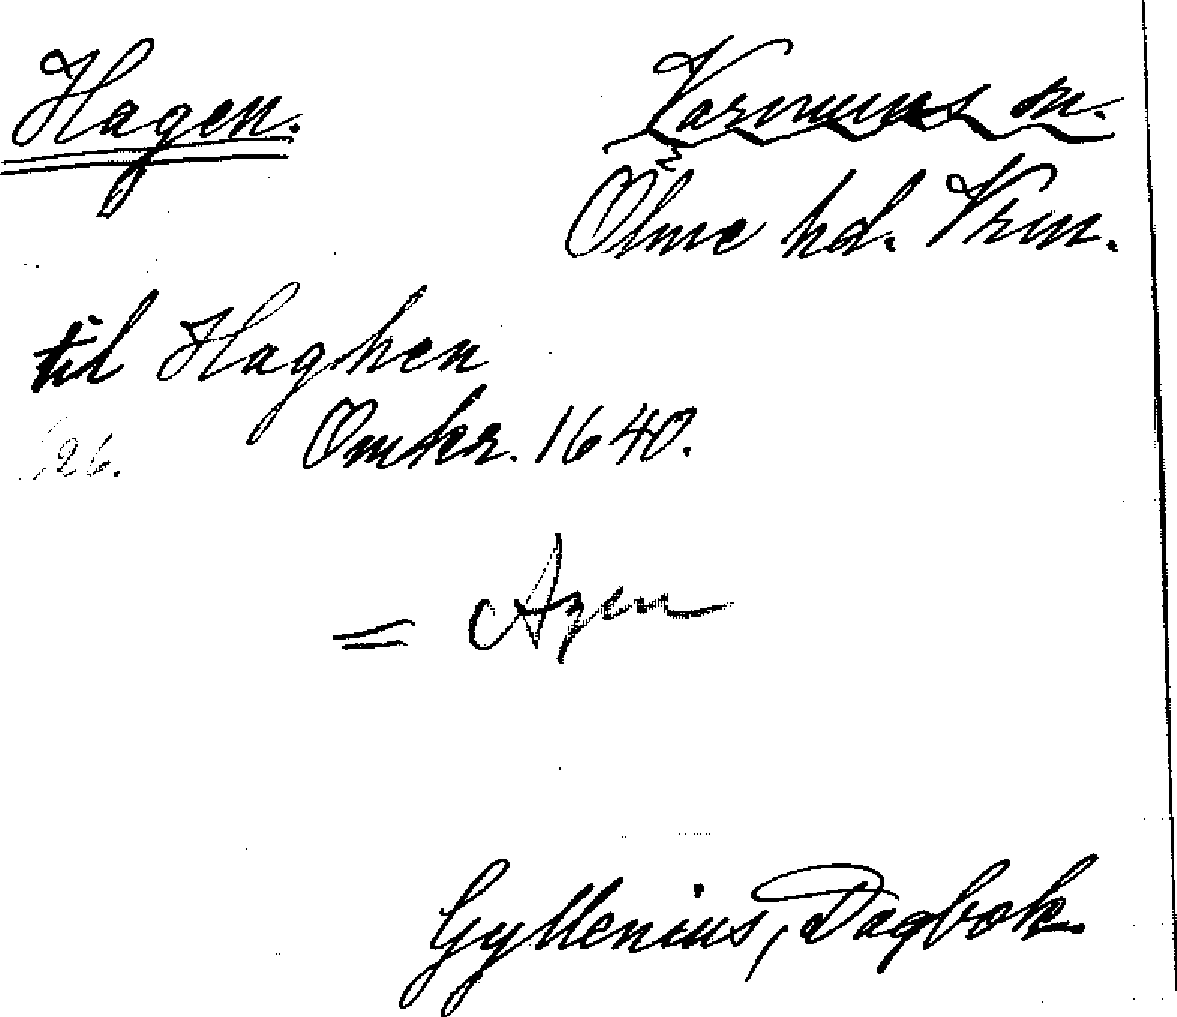 Hagen.
Varnums sn.
Ölme hd. Vrm.
til Haghen
S. 26. Omkr. 1640.
= Agen
Gyllenius, Dagbok.